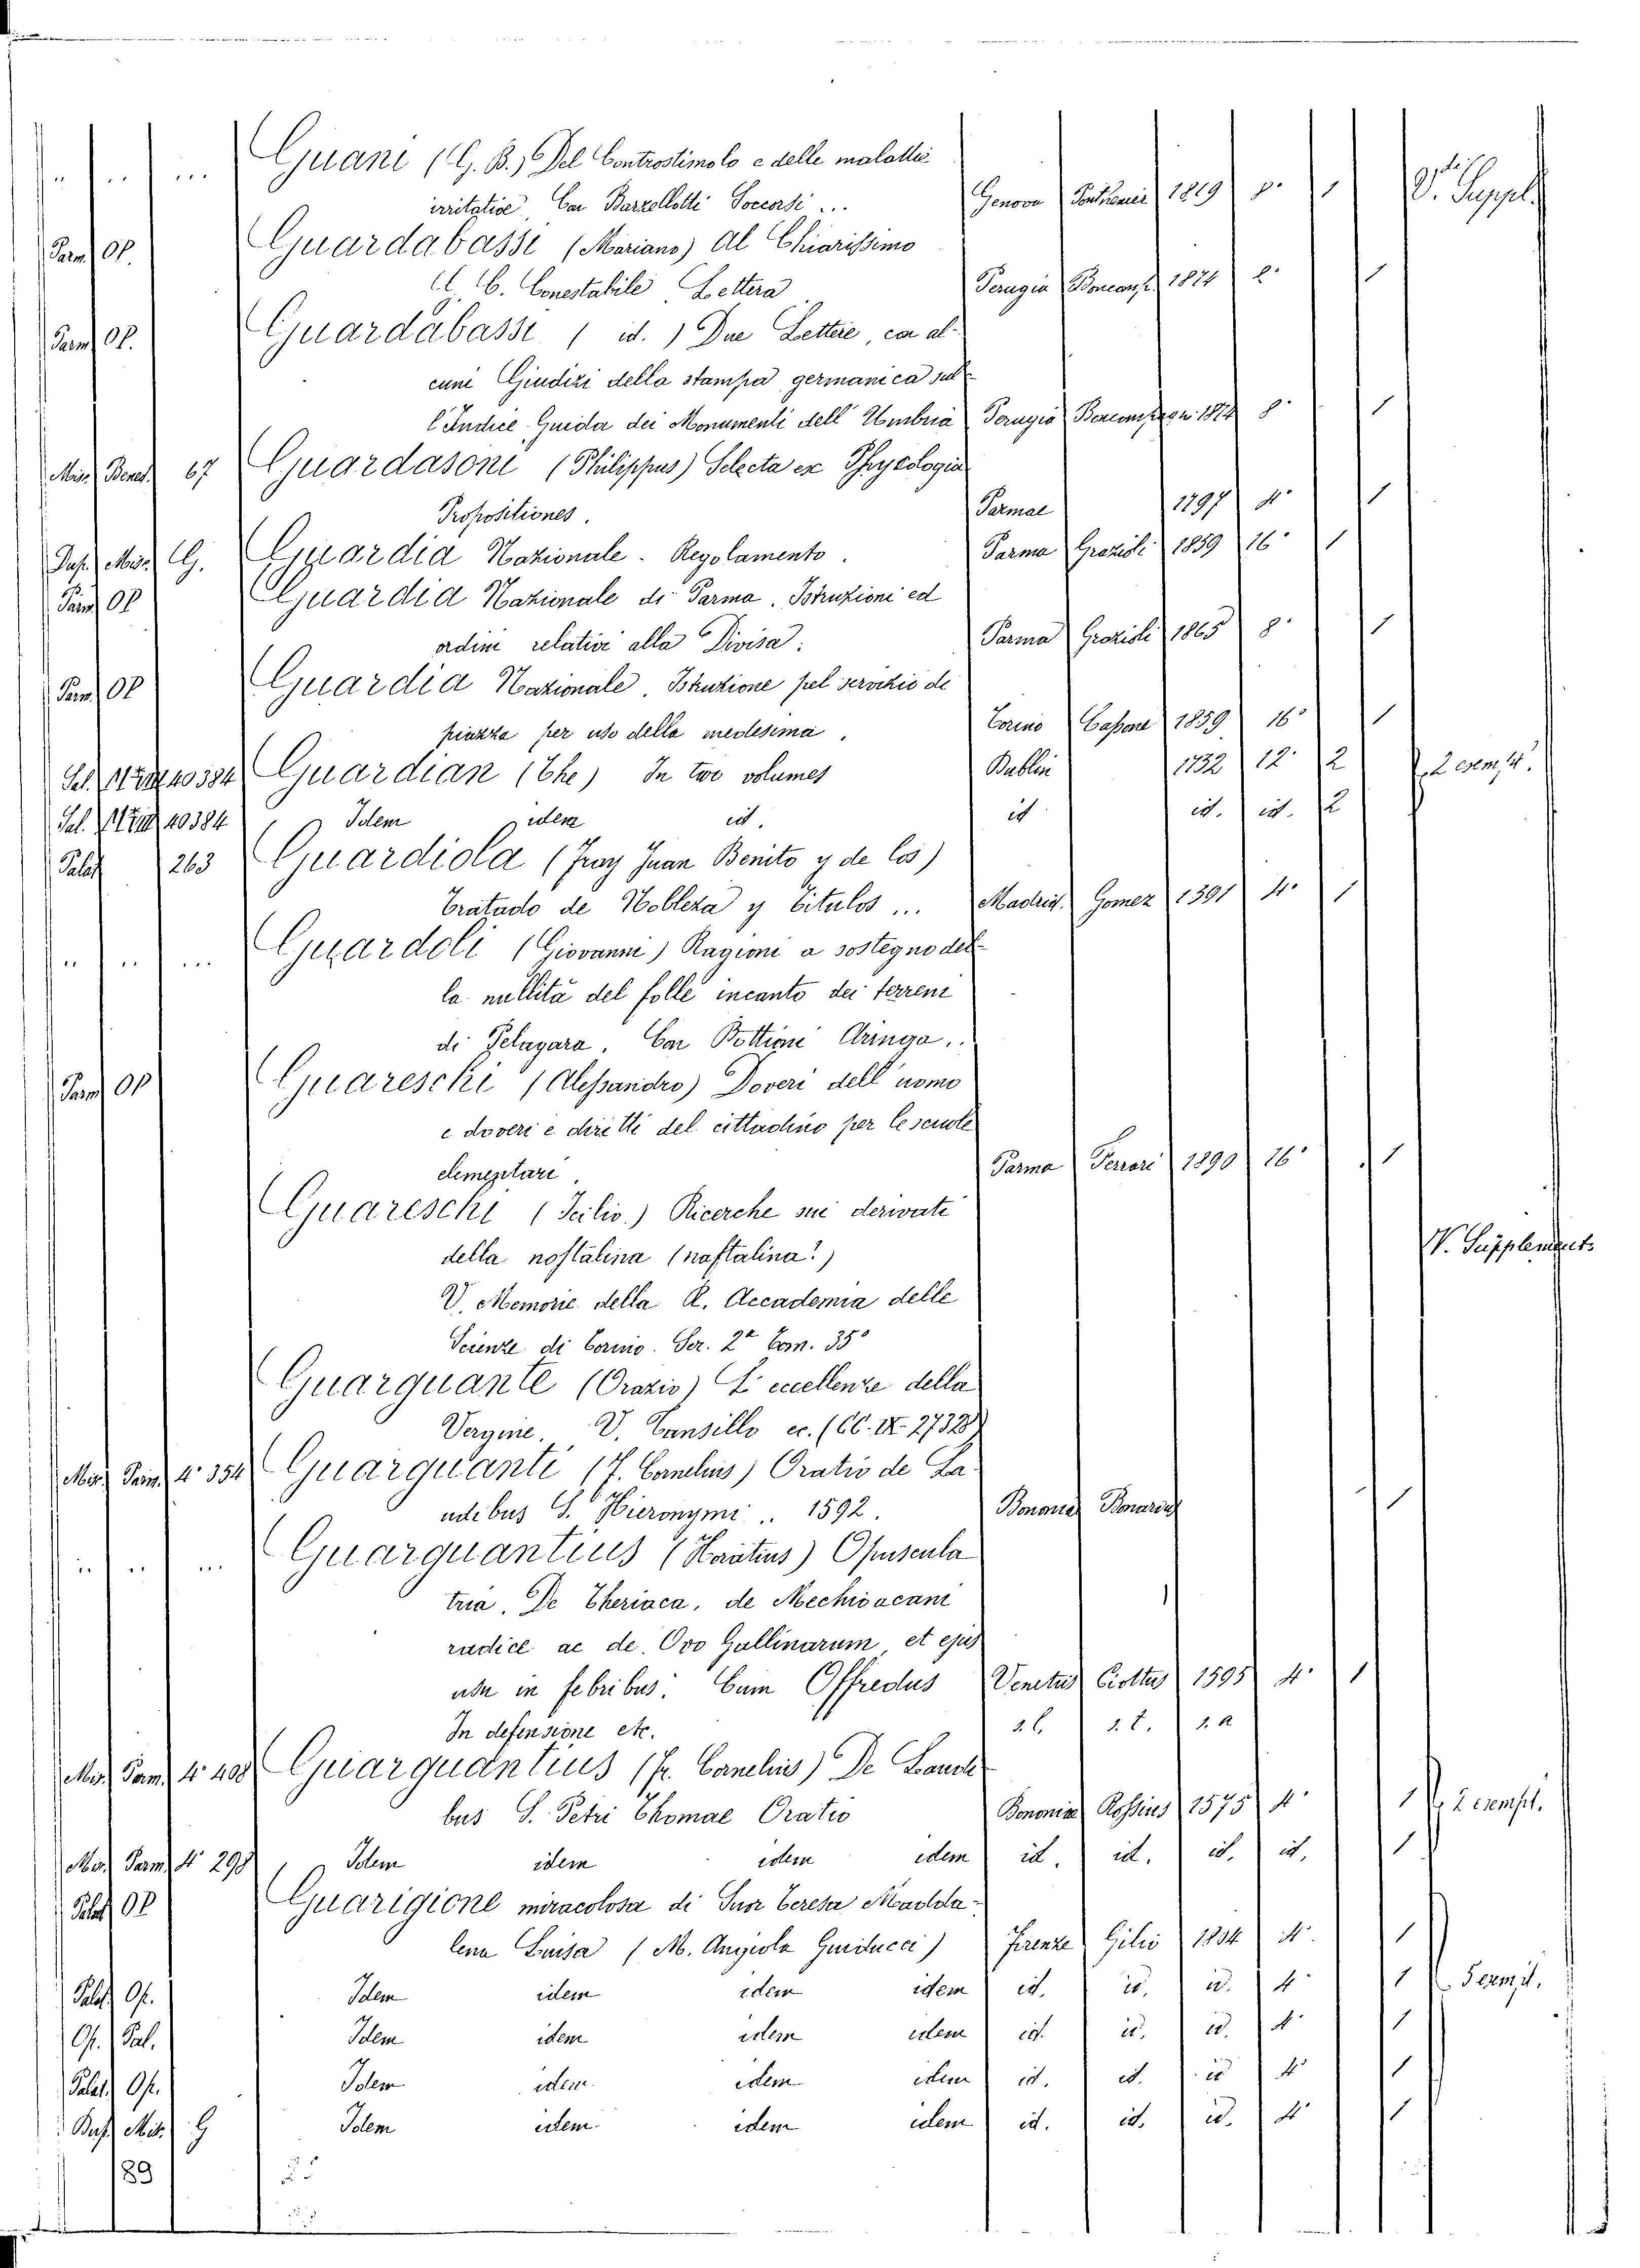 .. .. ... Guani (G. B.) Del Controstimolo e delle malattie
irritative Con Barzellotti Soccorsi ... Genova 1819 8° 1 V. Suppl.
Parm. Op. Guardabassi (Mariano) Al Chiarissimo
C. Conestabile Lettera Perugia Boncomp. 1874 8° 1
Parm. Op. Guardabassi (id.) Due Lettere, con al-
cuni Giudizi della stampa germanica sul-
l'Indice-Guida dei Monumenti dell'Umbria Perugia Boncompagni 1874 8° 1
Misc. Bened. 67 Guardasoni (Philippus) Selecta ex Physiologia
Propositiones. Parmae 1797 4° 1
Misc. G. Guardia Nazionale. Regolamento. Parma Grazioli 1859 16° 1
Parm. Op. Guardia Nazionale di Parma. Istruzioni ed
ordini relativi alla Divisa. Parma Grazioli 1865 8° 1
Parm. Op. Guardia Nazionale. Istruzione pel servizio di
piazza per uso della medesima. Torino Cassone 1859 16° 1
Sal. 40384 Guardian (The) In two volumes Dublin 1752 12° 2 2 esempl.
Sal. 40384 Idem idem id. id id. id. 2
Palat. 263 Guardiola (Fray Juan Benito y de los)
Tratado de Nobleza y Titulos ... Madrid. Gomez 1591 4° 1
.. .. ... Guardoli (Giovanni) Ragioni a sostegno del-
la nullità del folle incanto dei terreni
di Pelagara. Con Bottioni Aringa..
Parm. Op Guareschi (Alessandro) Doveri dell'uomo
e doveri e diritti del cittadino per le scuole
elementari. Parma Ferrari 1890 16° 1
Guareschi (Icilio.) Ricerche sui derivati
della nostalina (naftalina?) V. Supplement.
V. Memorie della R. Accademia delle
Scienze di Torino. Ser. 2ª Tom. 35°
Guarguante (Orazio) L'eccellenze della
Vergine. V. Tansillo ec. (CC. IX. 27328)
Misc. Parm. 4° 354 Guarguanti (F. Camelius) Oratio de La-
udibus S. Hieronymi .. 1592. Bononiae Bonardus 1
.. .. ... Guarguantius (Horatius) Opuscula
tria. De Theriaca, de Mechioacani
radice ac de Ovo Gallinarum et ejus
usu in febribus. Cum Offredus Venetiis Ciottus 1595 4° 1
In defensione etc. s. l. s. t. s. a
Misc. Parm. 4° 408 Guarguantius (fr. Camelius) De Laudi-
bus S. Petri Thomae Oratio Bononiae Rossius 1575 4° 1 2 esempl.
Misc. Parm. 4° 298 Idem idem idem idem id. id. id. id. 1
Palat. Op Guarigione miracolosa di Suor Teresa Madda-
lena Luisa (M. Angiola Guiducci) Firenze Giliò 1804 4° 1
Palat. Op. Idem idem idem idem id. id. id. 4° 1 5 esempl.
Op. Pal. Idem idem idem idem id. id. id. 4° 1
Palat. Op. Idem idem idem idem id. id. id 4° 1
Misc. G Idem idem idem idem id. id. id. 4° 1
89